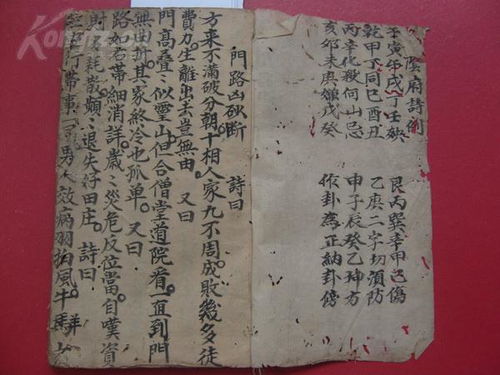 府詩例
寅午戌丁壬缺 艮丙巽辛甲己傷
乾甲不同巳酉丑 乙庚二字切須防
丙辛化殺何山忌 申子辰癸乙坤方
亥卯未庚嫌戊癸 作卦為正納卦傍
門路凶砍斷 詩曰
方來不滿破分朝十相人家九不周成敗幾多徒
費力生離出去豈無由 又曰
門高叠〻似靈山但合僧堂道院看一直到門
無曲折其家終冷也孤單 又曰
路如若帶細消詳歲〻災危反位當自嘆資
財耗散頻〻退失好田庄 詩曰
行帶事男人效病羽拍風牛